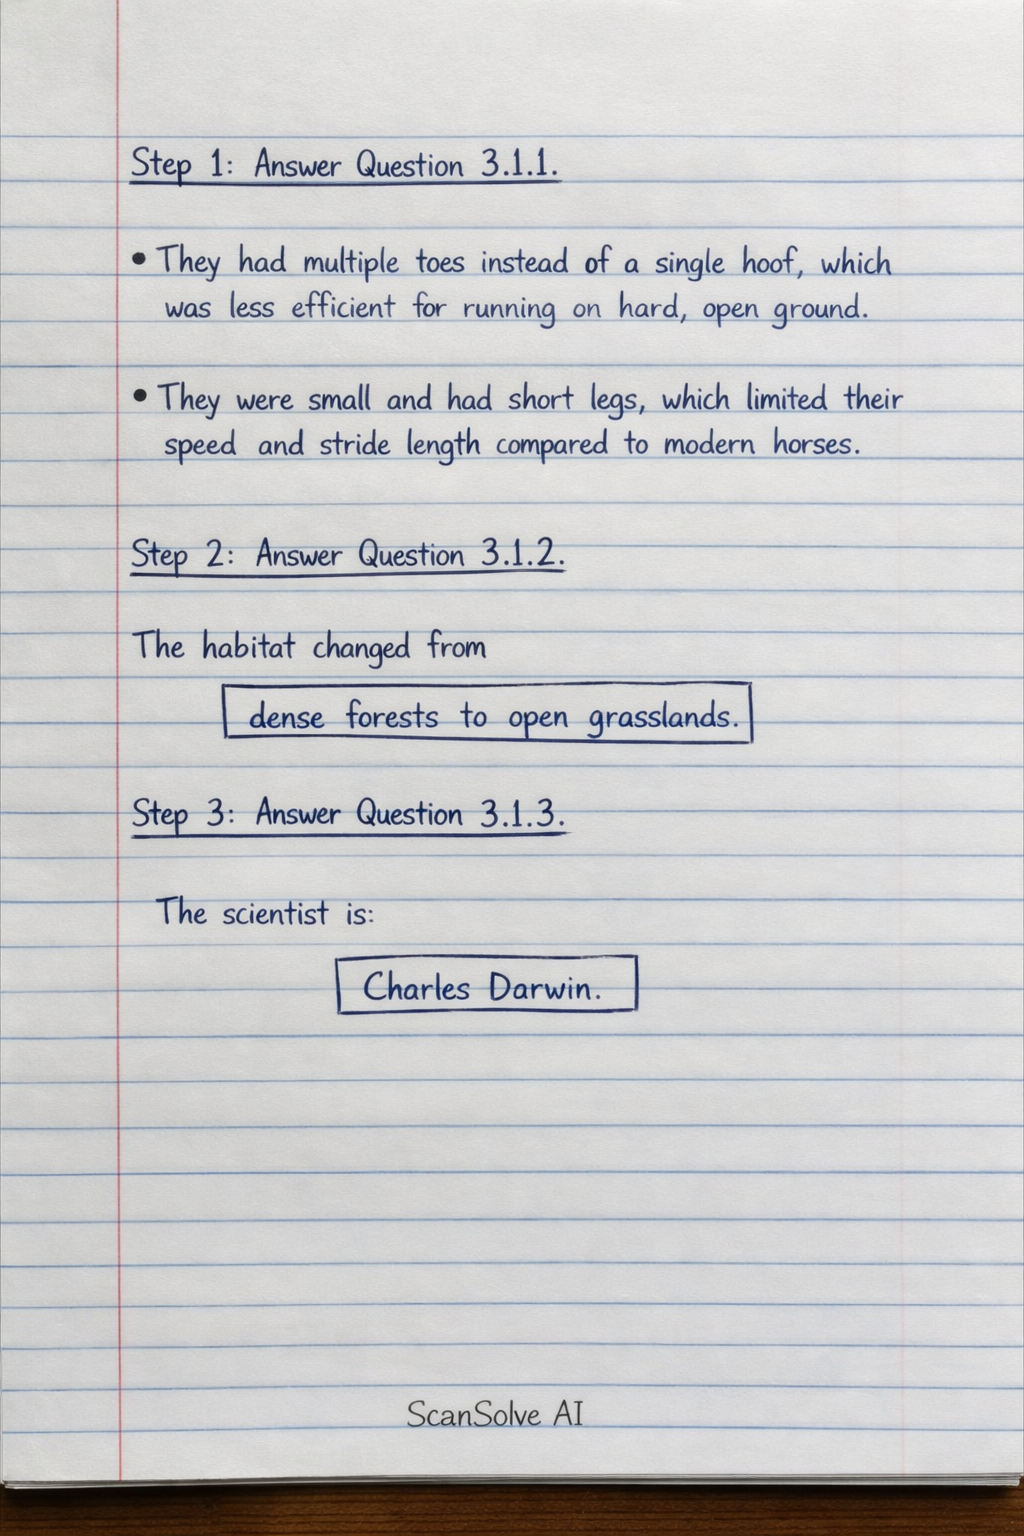 Step 1: Answer Question 3.1.1.
• They had multiple toes instead of a single hoof, which
was less efficient for running on hard, open ground.
• They were small and had short legs, which limited their
speed and stride length compared to modern horses.
Step 2: Answer Question 3.1.2.
The habitat changed from
dense forests to open grasslands.
Step 3: Answer Question 3.1.3.
The scientist is:
Charles Darwin.
ScanSolve AI